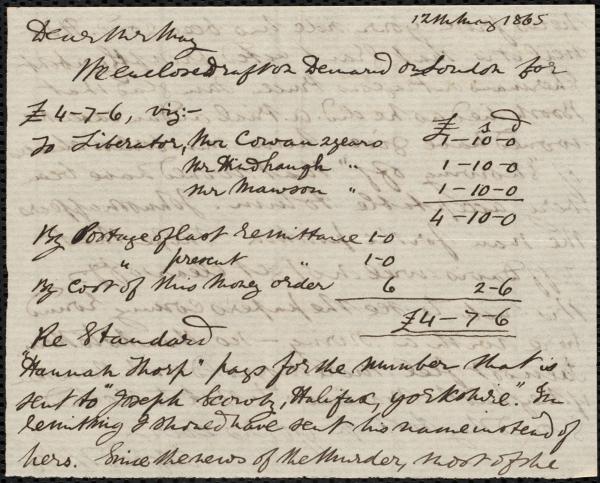 12th May 1865
Dear Mr May
We enclose Draft on Demand on London for
£4-7-6, viz:-
£ s d
To Liberator, Mr Cowan 2 years 1-10-0
Mr Hindhaugh " 1-10-0
Mr Mawson " 1-10-0
4-10-0
By Postage of last Remittance 1-0
" present " 1-0
By Cost of this Money order 6 2-6
£4-7-6
Re Standard
"Hannah Thorp" pays for the number that is
sent to "Joseph , Halifax, Yorkshire". In
remitting I should have sent his name instead of
hers. Since the news of the Murder, most of the